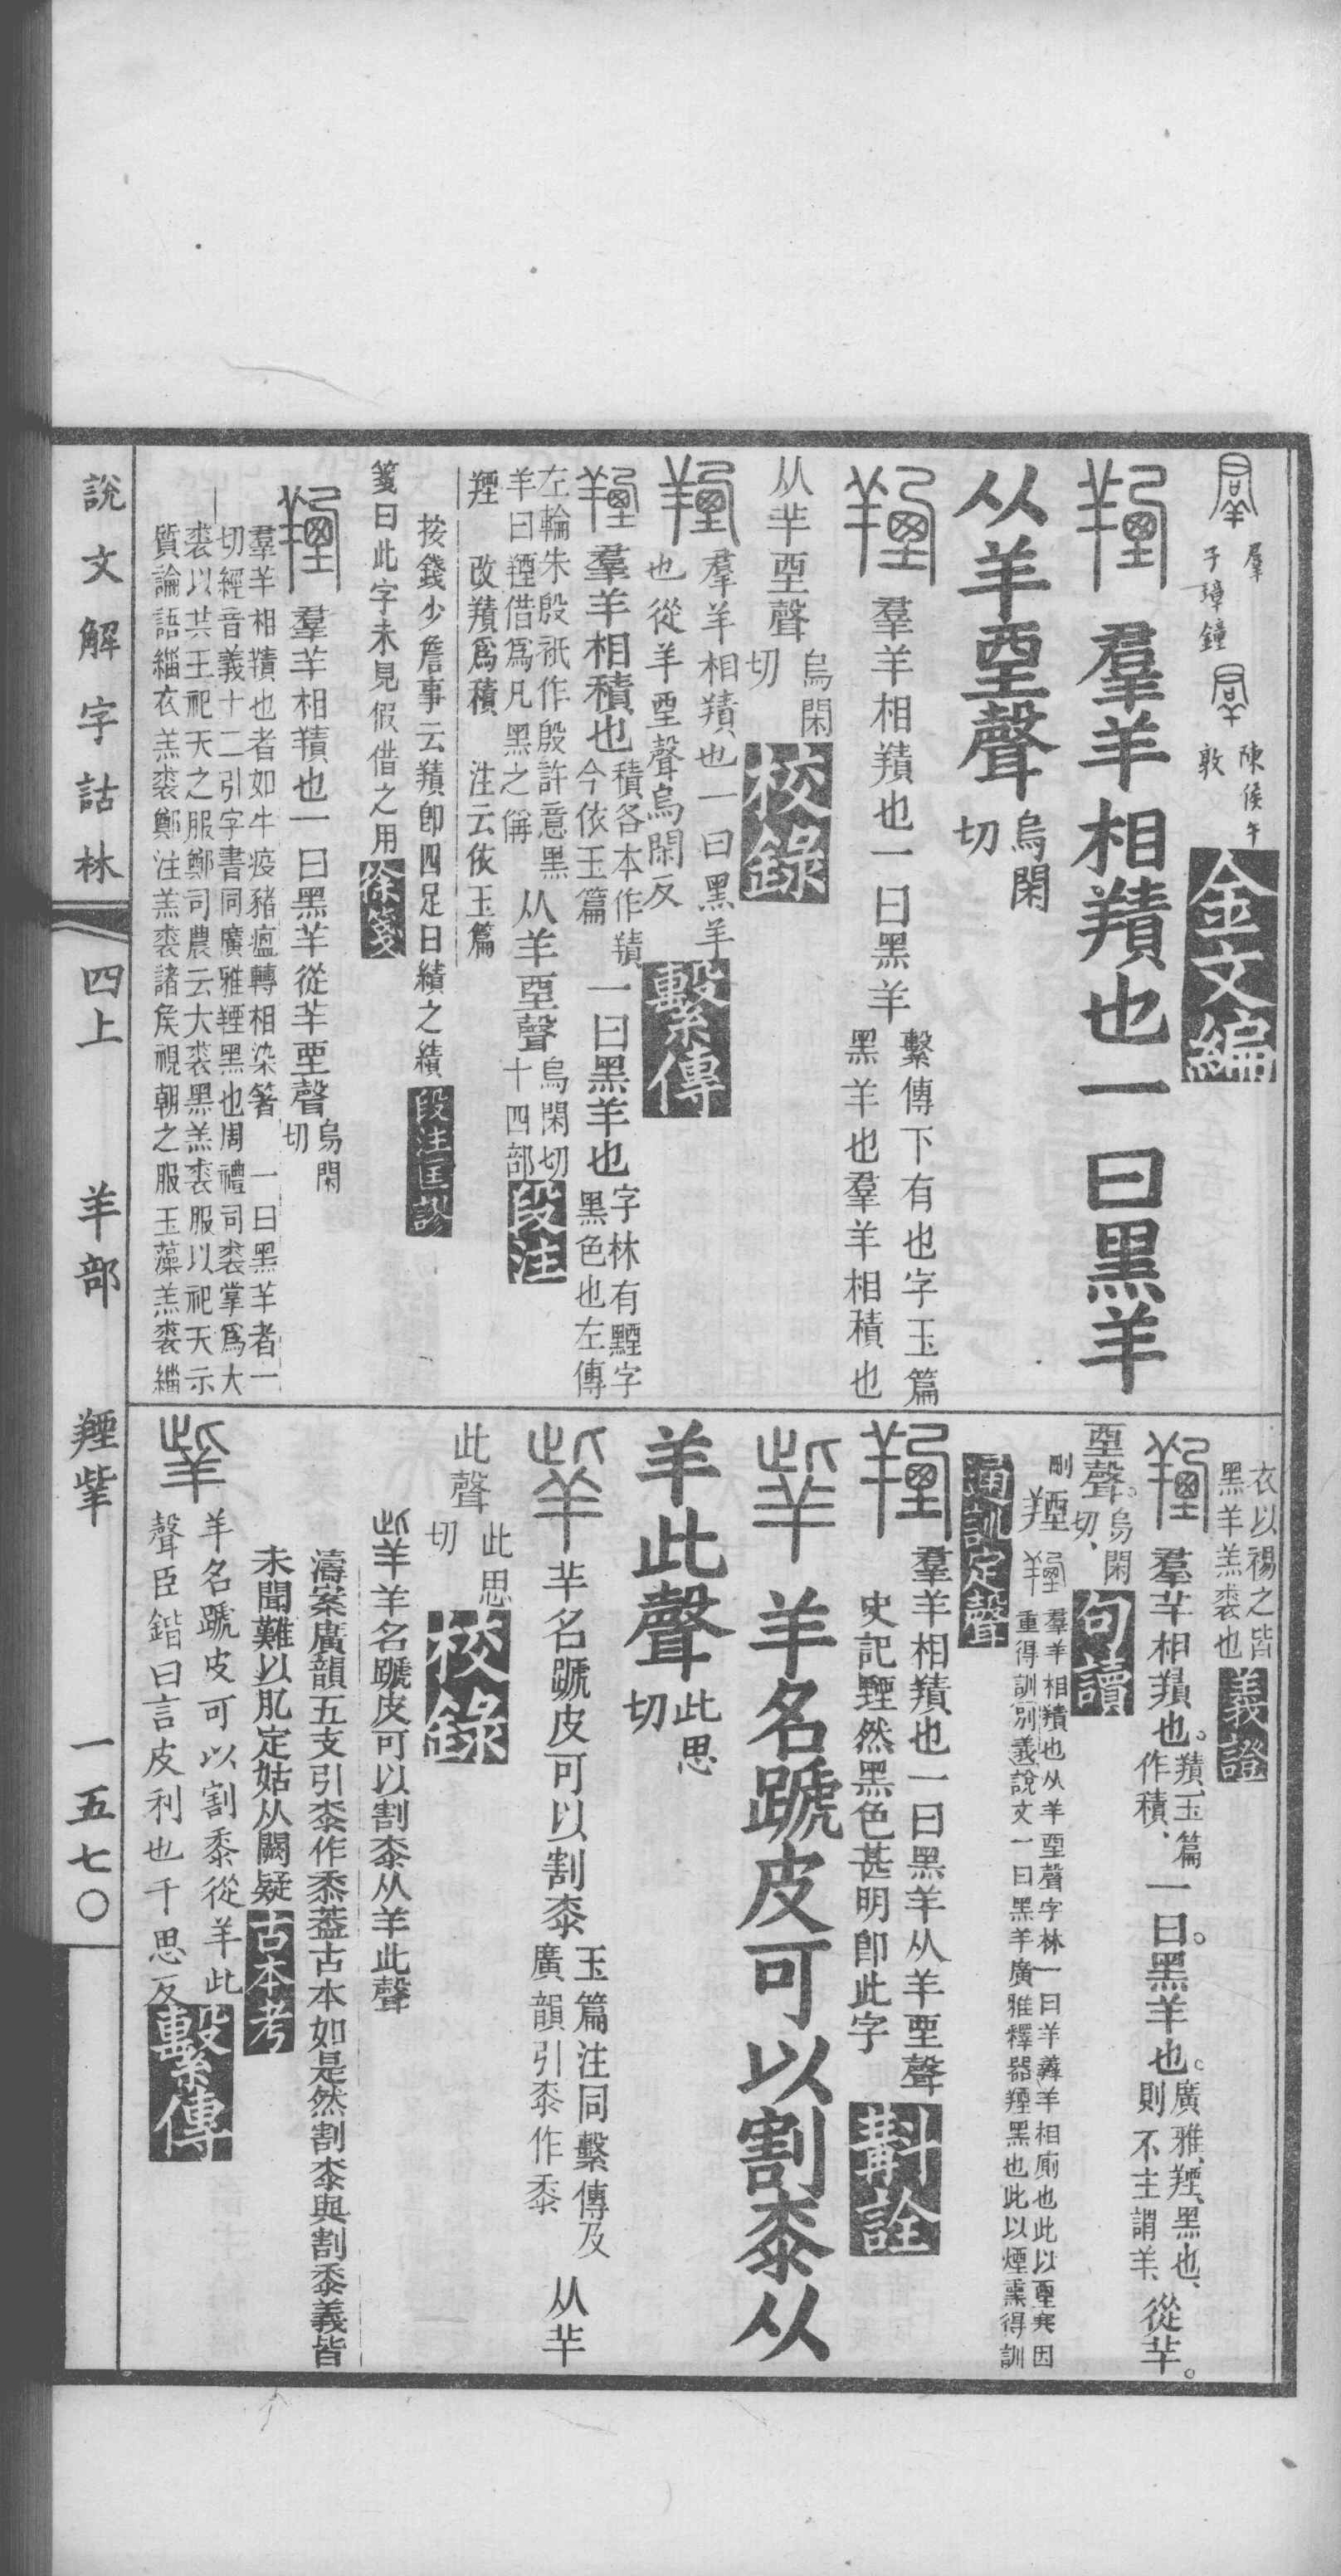 羣 子璋鐘 陳侯午敦 金文編
羣羊相羵也一曰黑羊
从羊垔聲 烏閑切
羣羊相羵也一曰黑羊 繫傳下有也字玉篇黑羊也羣羊相積也
从羊垔聲 烏閑切 校錄
羣羊相羵也一曰黑羊也從羊垔聲烏閑反 繫傳
羣羊相積也 積各本作羵今依玉篇 一曰黑羊也 字林有黫字黑色也左傳
左輪朱殷祇作殷許意黑羊曰羥借爲凡黑之偁 从羊垔聲 烏閑切十四部 段注
羥 改羵爲積 注云依玉篇
按錢少詹事云羵卽四足曰 之 段注匡謬
箋曰此字未見假借之用 徐箋
羣羊相羵也一曰黑羊從羊垔聲 烏閑切
羣羊相羵也者如牛疫豬瘟轉相染箸 一曰黑羊者一
切經音義十二引字書同廣雅羥黑也周禮司裘掌爲大
裘以共王祀天之服鄭司農云大裘黑羔裘服以祀天示
質論語緇衣羔裘鄭注羔裘諸侯視朝之服玉藻羔裘緇
衣以裼之皆黑羊羔裘也 義證
羣羊相羵也。羵玉篇作積、一曰。黑羊也。廣雅、羥、黑也、則不主謂羊、從羊。
垔聲。烏閑切、 句讀
羣羊相羵也从羊垔聲字林一曰羊 羊相廁也此以垔 因
重得訓別義說文一曰黑羊廣雅釋器羥黑也此以煙熏得訓
通訓定聲
羣羊相羵也一曰黑羊从羊垔聲
史記黫然黑色甚明卽此字 斠詮
羊名蹏皮可以割桼从
羊此聲 此思切
羊名蹏皮可以割桼 玉篇注同繫傳及廣韻引桼作黍 从羊
此聲 此思切 校錄
羊名蹏皮可以割桼从羊此聲
濤案廣韻五支引桼作黍葢古本如是然割桼與割黍義皆
未聞難以肊定姑从闕疑 古本考
羊名蹏皮可以割黍從羊此
聲臣鍇曰言皮利也千思反 繫傳
說文解字詁林 四上 羊部 羥羠 一五七〇